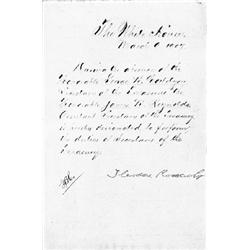 The White House,
March 6 1907.
During the absence of the
Honorable George B. Cortelyou
Secretary of the Treasury the
Honorable James B. Reynolds
Assistant Secretary of the Treasury
is hereby designated to perform
the duties of Secretary of the
Treasury.
Theodore Roosevelt